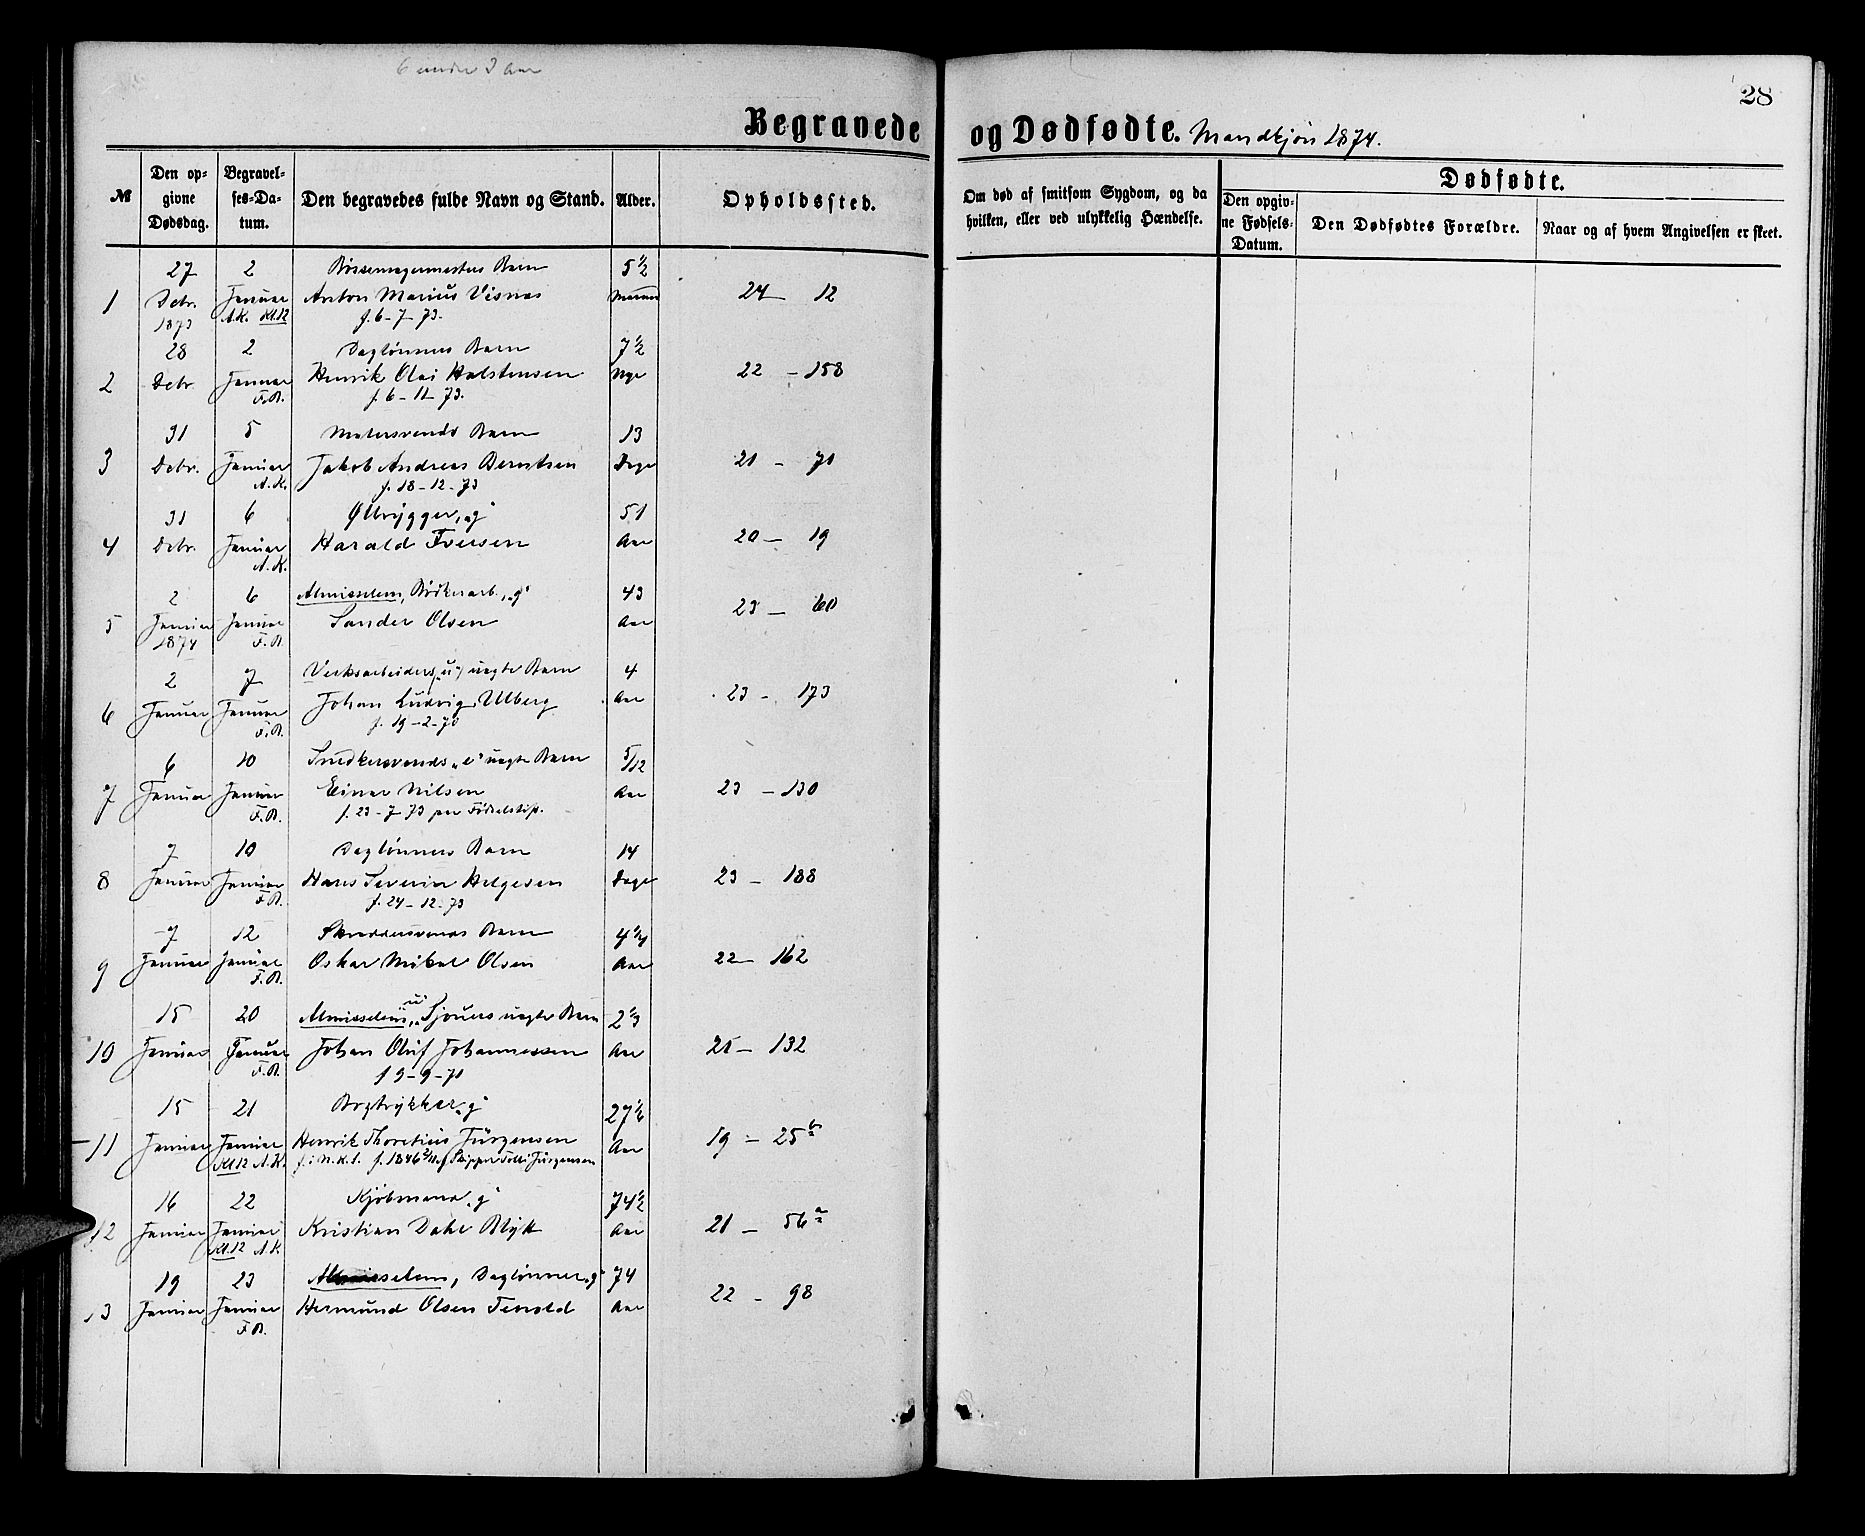 6 under 3 Aar
28
Begravede og Dødfødte. Mandkjøn 1874.
№ Den opgivne Dødsdag. Begravelses-Datum. Den begravedes fulde Navn og Stand. Alder. Opholdssted. Om død af smitsom Sygdom, og da hvilken, eller ved ulykkelig Hændelse. Dødfødte. Den opgivne Fødsels-Datum. Den Dødfødtes Forældre. Naar og af hvem Angivelsen er skeet.
27 2 Bøssemagermesters Barn 5 1/2
1 Debr. Januar Anton Marius Visnes Maaned 24 — 12
1873 A.K. Kl.12 f. 6-7-73.
28 2 Daglønners Barn 7 1/2
2 Debr. Januar Henrik Olai Halstensen Uge 22 — 158
F.B. f. 6-11-73.
31 5 Malersvends Barn 13
3 Debr. Januar Jakob Andreas Berntsen Dage 21 — 71
A.K. f. 18-12-73
31 6 Ølbrygger, „g“ 51
4 Debr. Januar Harald Iversen Aar 20 — 19
A.K.
2 6 Almisselem, Bødkerarb., „g“ 43
5 Januar Januar Sander Olsen Aar 23 — 60
1874 F.B.
2 7 Verksarbeiders „u“ uægte Barn 4
6 Januar Januar Johan Ludvig Ulberg Aar 23 — 173
F.B. f. 19-2-70
6 10 Snedkersvends „e“ uægte Barn 5/12
7 Januar Januar Einar Nilsen Aar 23 — 130
F.B. f. 23-7-73 per Fødselstip.
7 10 Daglønners Barn 14
8 Januar Januar Hans Severin Helgesen Dage 23 — 188
F.B. f. 24-12-73
7 12 Skreddersvends Barn 4 1/4
9 Januar Januar Oskar Mikal Olsen Aar 22 — 162
F.B.
15 20 Almisselem, „u“ Sjouers uægte Barn 2 1/3
10 Januar Januar Johan Oluf Johannessen Aar 21 — 132
F.B. 13-9-71
15 21 Bogtrykker „g“ 27 1/6
11 Januar Januar Henrik Thoretius Jürgensen Aar 19 — 25 b
Kl.12 A.K. f. i N.K.S. f. 1846 Skipper Jürgensen
16 22 Kjøbmand „g“ 74 1/2
12 Januar Januar Kristian Dahl Blytt Aar 21 — 56 a
Kl.12 A.K.
19 23 Almisselem, Daglønner „g“ 74
13 Januar Januar Hermund Olsen Tenold Aar 22 — 98
F.B.